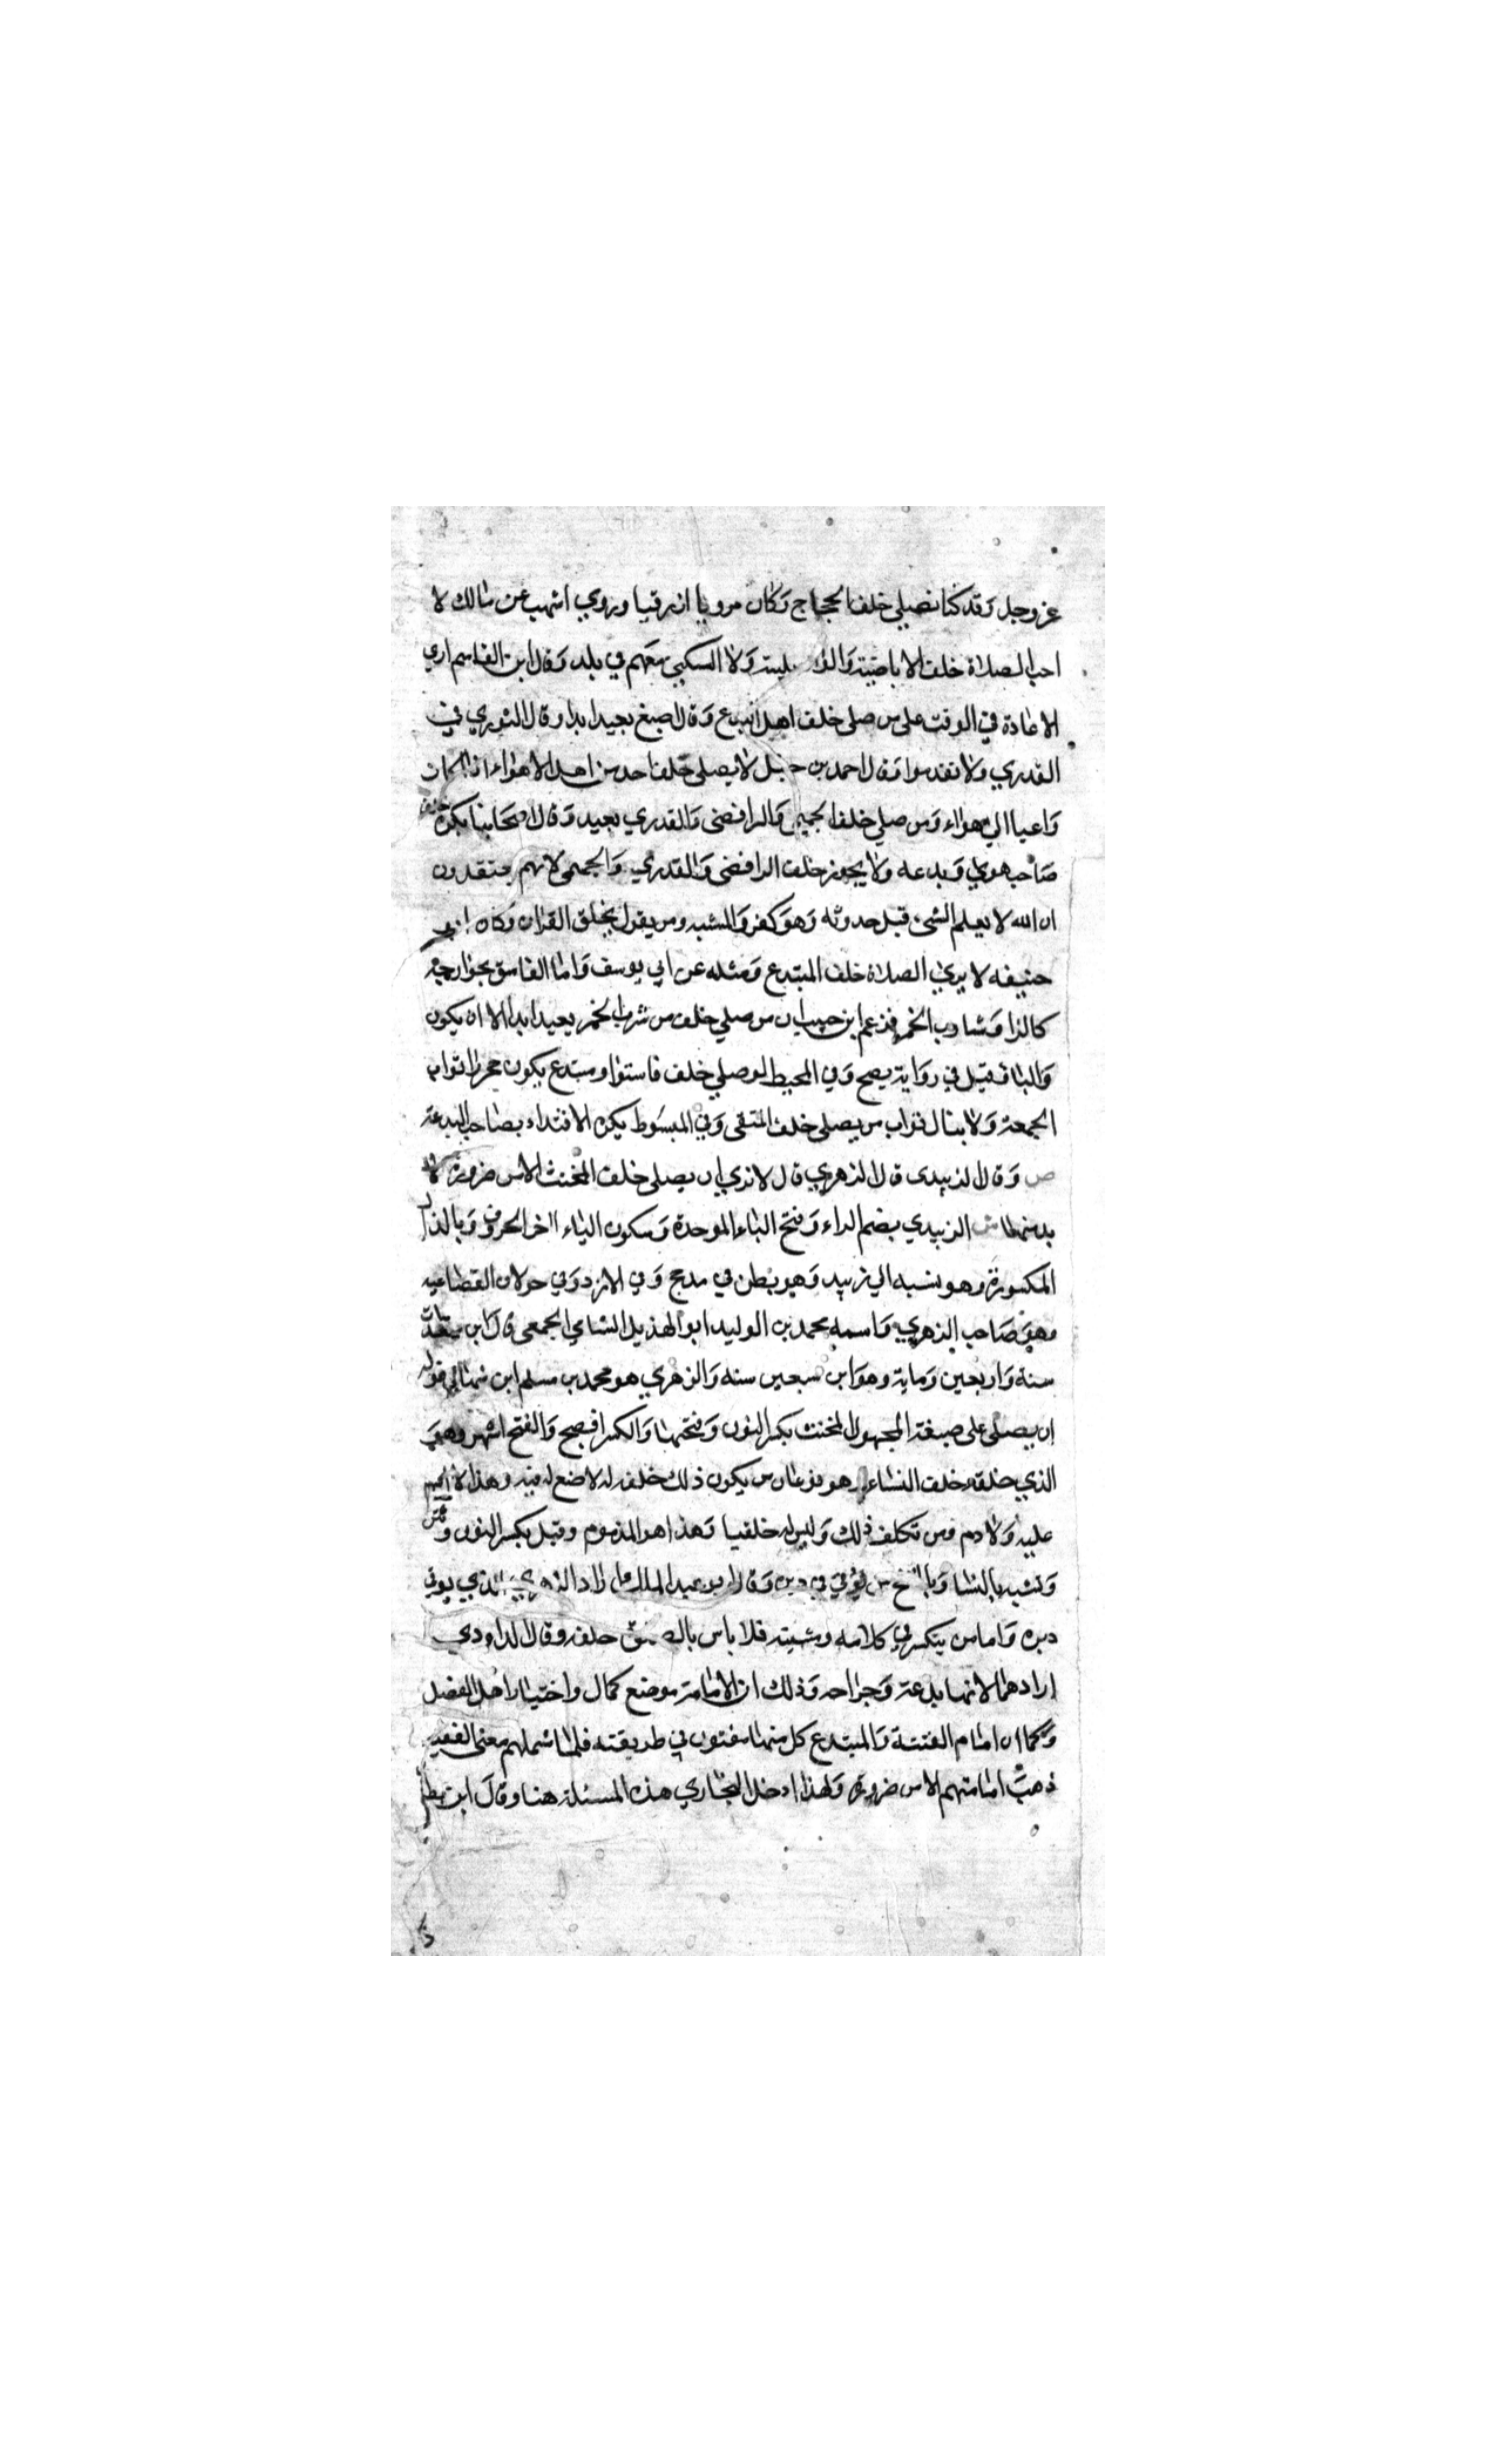 عز وجل وقد كنا نصلي خلف الحجاج وكان مروريا ازرقيا وروي اشهب عن مالك لا
احب الصلاة خلف الاباضية ولا السكني معهم في بلد وقال ابن القاسم اري
الاعادة في الوقت على من صلى خلف اهل البدع وقال اصبغ يعيد ابدا وقال الثوري في
القدري ولا تقدموا وقال احمد بن حنبل لا يصلي خلف احد من اهل الاهواء اذا كان
داعيا الي هواه ومن صلي خلف الجهمي والرافضى والقدري يعيد وقال اصحابنا يكره خلف
صاحب هوي وبدعه ولا يجوز خلف الرافضى والقدري والجهمى لانهم يعتقدون
ان الله لا يعلم الشئ قبل حدوثه وهو كفر والمشبه ومن يقول بخلق القران وكان ابو
حنيفه لا يري الصلاة خلف المبتدع ومثله عن ابي يوسف واما الفاسق بجوارحه
كالزا وشارب الخمر فزعم ابن حبيب ان من صلي خلف من شرب الخمر يعيد ابدا الا ان يكون
واليا فقيل في رواية يصح وفي المحيط لو صلي خلف فاسق او مبتدع يكون محرزا ثواب
الجمعة ولا ينال ثواب من يصلى خلف المتقى وفي المبسوط يكره الاقتداء بصاحب البدعة
ص وقال الزبيدى قال الزهري قال لا نري ان يصلى خلف المخنث الا من ضرورة لا
بد منها ش الزبيدي بضم الراء وفتح الباء الموحدة وسكون الياء اخر الحروف وبالدال
المكسورة وهو نسبه الي زبيد وهو بطن في مدحج وفي الازد وفي حولان القضاعيه
وهو صاحب الزهري واسمه محمد بن الوليد ابو الهذيل الشامي الجمعى قال ابن سعد مات
سنة واربعين وماية وهو ابن سبعين سنه والزهري هو محمد بن مسلم ابن شهاب قوله
ان يصلى على صيغة المجهول المخنث بكسر النون وفتحها والكسر افصح والفتح اشهر وهو
الذي خلقه خلق النساء وهو نوعان من يكون ذلك خلقه له لا صنع له فيه وهذا لا اثم
عليه ولا دم ومن تكلف ذلك وليس له خلقيا وهذا هو المذموم وقيل بكسر النون
وتشبه بالنسا من يؤتي في دبره وقال ابو عبد الملك اراد الزهري الذي يوتي
دبره واما من يتكسر في كلامه ومشيته فلا باس بالصلاة خلفه وقال الداودي
ارادهما لانهما بدعة وجراحه وذلك ان الامامة موضع كمال واختيار اهل الفضل
وكما ان امام الفتنة والمبتدع كل منهما مفتون في طريقته فلما شملهم معنى الفتنة
ذهبت امامتهم الا من ضرورة ولهذا ادخل البخاري هذه المسئلة هنا وقال ابن بطال